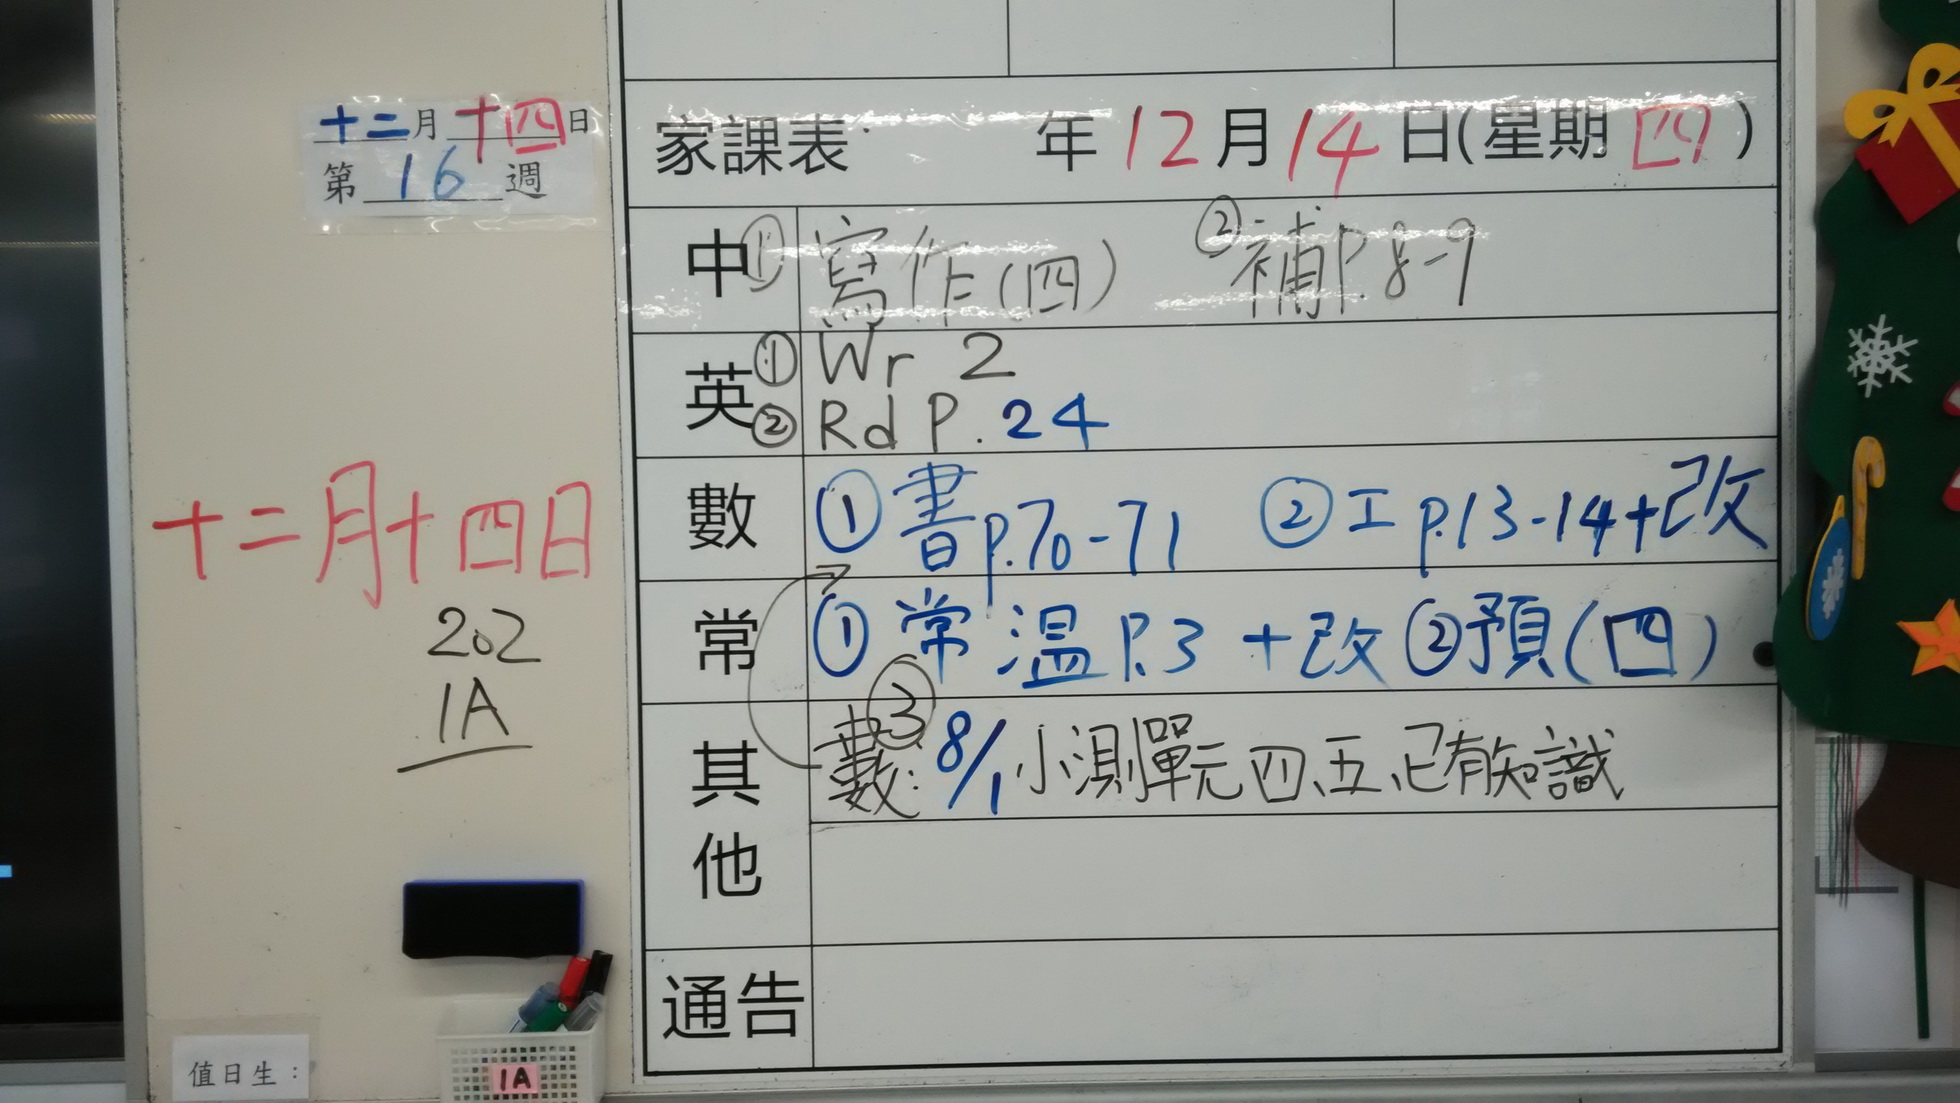 十二月十四日
第16週
十二月十四日
202
1A
值日生：
1A
家課表： 年12月14日(星期四)
中 ①寫作(四) ②補P.8-9
英 ①Wr 2
②Rd P.24
數 ①書p.70-71 ②工p.13-14+改
常 ①常溫P.3 +改 ②預(四)
其他 ③數：8/1小測單元四、五、已有知識
通告